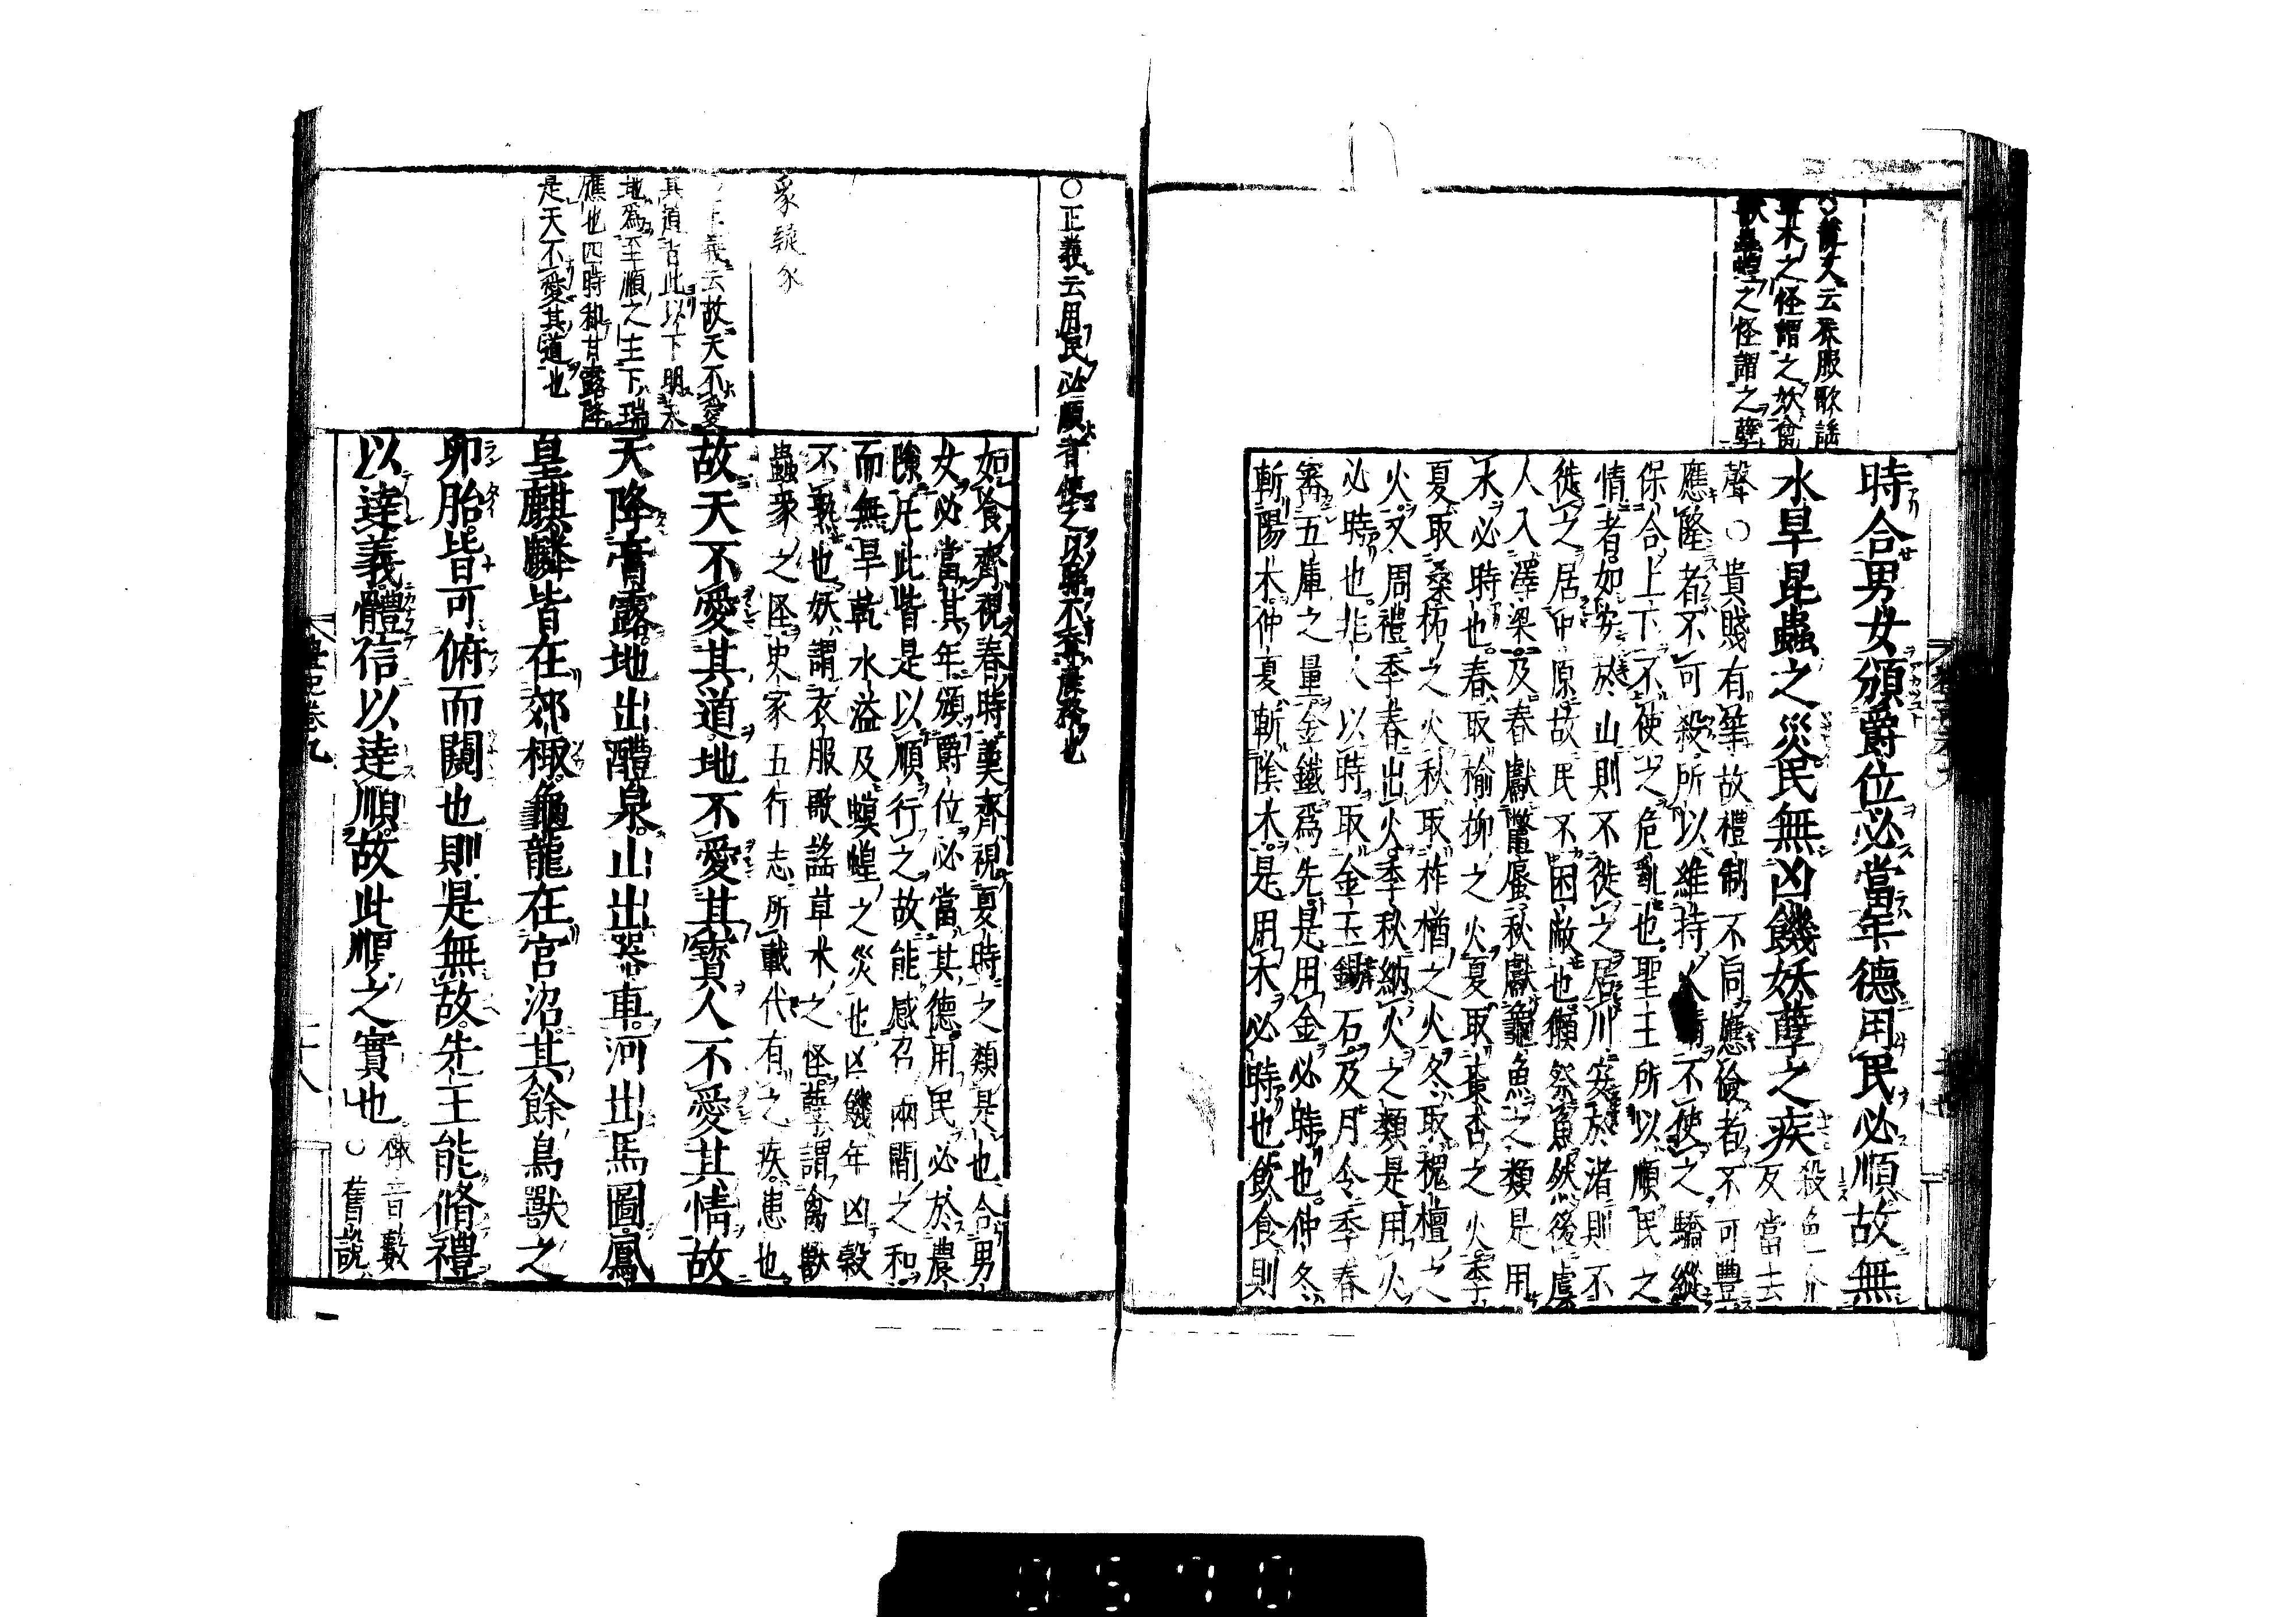 ○說文云衣服歌謠
草木之怪謂之妖禽
獸蟲蝗之怪謂之孽
時合男女頒爵位必當年德用民必順故無
水旱昆蟲之災民無凶饑妖孽之疾
殺色介
反當去
聲○貴賤有等故禮制不同應儉者不可豐
應隆者不可殺所以維持人情不使之驕縱
保合上下不使之危亂也聖王所以順民之
情者如安於山則不徙之居川安於渚則不
徙之居中原故民不困敝也獺祭魚然後虞
人入澤梁及春獻鼈蜃秋獻龜魚之類是用
水必時也春取楡柳之火夏取棗杏之火季
夏取桑柘之火秋取柞楢之火冬取槐檀之
火又周禮季春出火季秋納火之類是用火
必時也丱人以時取金玉錫石及月令季春
審五庫之量金鐵爲先是用金必時也仲冬
斬陽木仲夏斬陰木是用木必時也飮食則
○正義云用民必順者使之以時不奪農務也
如食齊視春時羹齊視夏時之類是也合男
女必當其年頒爵位必當其德用民必於農
隙凡此皆是以順行之故能感召兩間之和
而無旱乾水溢及螟蝗之災也凶饑年凶穀
不熟也妖謂衣服歌謠草木之怪孽謂禽獸
蟲豸之怪史家五行志所載代有之疾患也
豸疑豕
正義云故天不愛
其道者此以下明天
地爲至順之主下瑞
應也四時和甘露降
是天不愛其道也
故天不愛其道地不愛其寶人不愛其情故
天降膏露地出醴泉山出器車河出馬圖鳳
皇麒麟皆在郊棷龜龍在宮沼其餘鳥獸之
卵胎皆可俯而闚也則是無故先王能脩禮
以達義體信以達順故此順之實也
棷音藪
○舊說
禮記卷九
二十八
0570